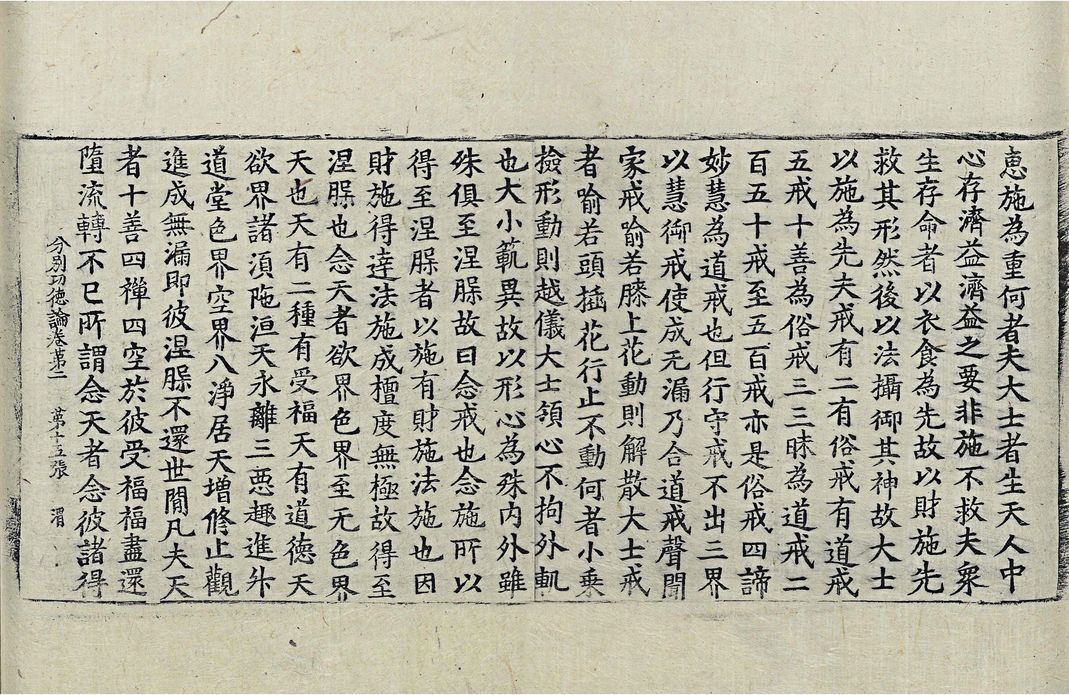 恵施為重何者夫大士者生天人中
心存濟益濟益之要非施不救夫衆
生存命者以衣食為先故以財施先
救其形然後以法攝御其神故大士
以施為先夫戒有二有俗戒有道戒
五戒十善為俗戒三三昧為道戒二
百五十戒至五百戒亦是俗戒四諦
妙慧為道戒也但行守戒不出三界
以慧御戒使成无漏乃合道戒聲聞
家戒喻若膝上花動則解散大士戒
者喻若頭插花行止不動何者小乗
撿形動則越儀大士領心不拘外軌
也大小軌異故以形心為殊内外雖
殊俱至涅槃故曰念戒也念施所以
得至涅槃者以施有財施法施也因
財施得達法施成檀度無極故得至
涅槃也念天者欲界色界至无色界
天也天有二種有受福天有道德天
欲界諸湏陁洹天永離三惡趣進升
道堂色界空界八淨居天增修止觀
進成無漏即彼涅槃不還世閒凡夫天
者十善四禪四空於彼受福福盡還
墮流轉不已所謂念天者念彼諸得
分别功德論卷第二 第十五張 渭